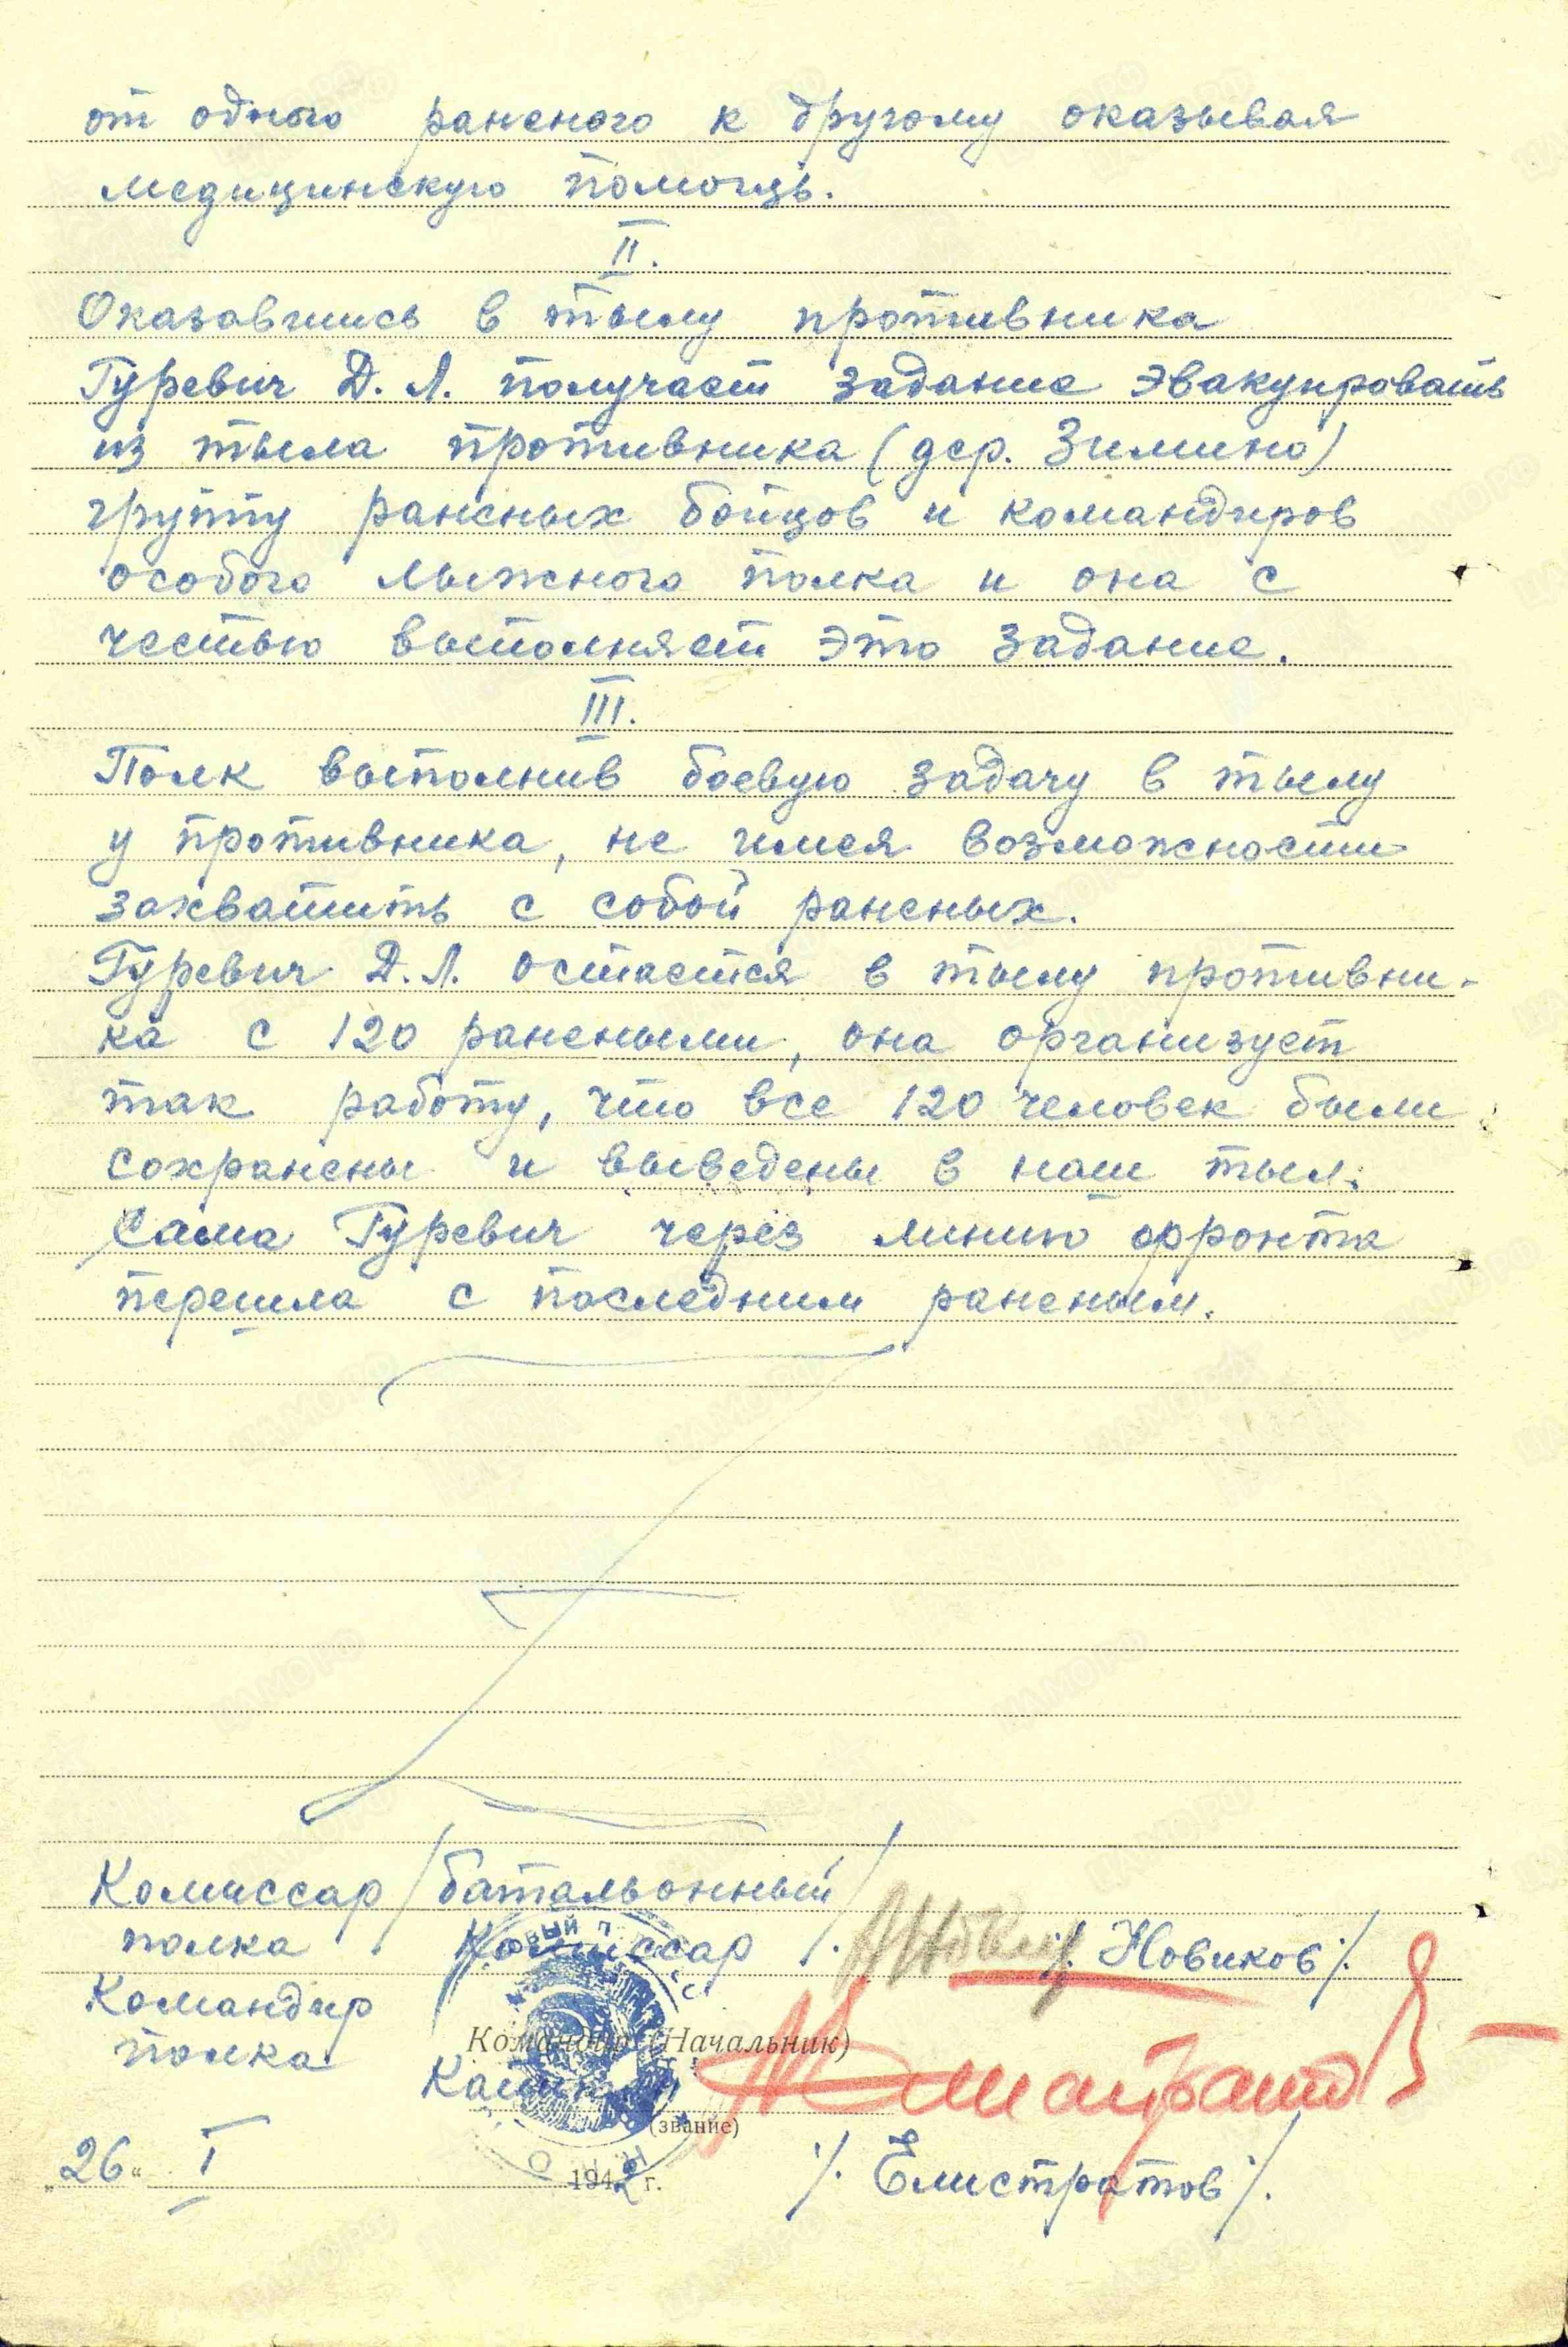 от одного раненого к другому оказывая
медицинскую помощь.
II.
Оказавшись в тылу противника
Гуревич Д. Л. получает задание эвакуировать
из тыла противника (дер. Зимино)
группу раненых бойцов и командиров
особого лыжного полка и она с
честью выполняет это задание.
III.
Полк выполнив боевую задачу в тылу
у противника, не имея возможности
захватить с собой раненых.
Гуревич Д. Л. остается в тылу противни-
ка с 120 ранеными, она организует
так работу, что все 120 человек были
сохранены и выведены в наш тыл.
Сама Гуревич через линию фронта
перешла с последним раненым.
Комиссар / батальонный /
полка / Комиссар /. /. Новиков /.
Командир
полка
Командир (Начальник)
(звание)
„26“ I 1942 г.
/. Елистратов /.